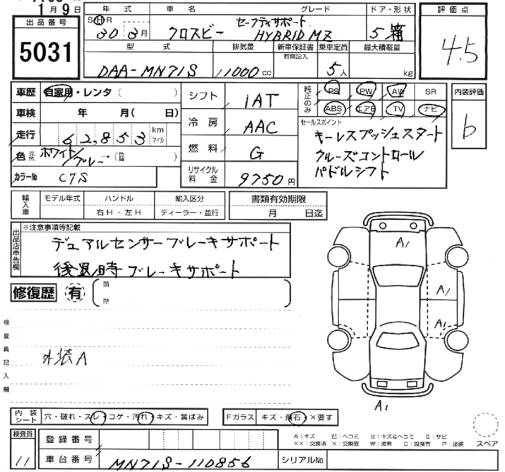 1月9日
出品番号 5031
年式 グレード ドア・形状 評価点
セーフティサポート
S H R 30年 月 クロスビー HYBRID MZ 5 4.5
型式 排気量 新車保証書 有無記入 乗車定員 最大積載量
DAA-MN71S 1000cc 5人 kg
車歴 自家用・レンタ( ) シフト 1AT 純正のみ PS PW AW SR 内装評価
車検 年 月( ) ABS エアB TV ナビ b
冷房 AAC セールスポイント
走行 62,853 km マイル キーレスプッシュスタート
色 ホワイト/ブルー→( ) 燃料 G クルーズコントロール
カラーNo C7S リサイクル料金 9750円 パドルシフト
輸入車 モデル年式 ハンドル 輸入区分 書類有効期限
年 右H・左H ディーラー・並行 月 日迄
出品店申告欄 ※注意事項等記載
デュアルセンサーブレーキサポート
後退時ブレーキサポート
修復歴 有 箇所
A1
A1
A1
A1
検査員記入欄
外装A
内装シート 穴・破れ・スレ コゲ・汚れ キズ・黄ばみ Fガラス キズ・飛石 ×要す
検査員 11 登録番号
車台番号 MN71S-110856 シリアルNo.
A:キズ E:ヘコミ B:キズ&ヘコミ S:サビ
XX:交換済 X:交換要 W:波板 C:腐食有 P:塗装
スペア